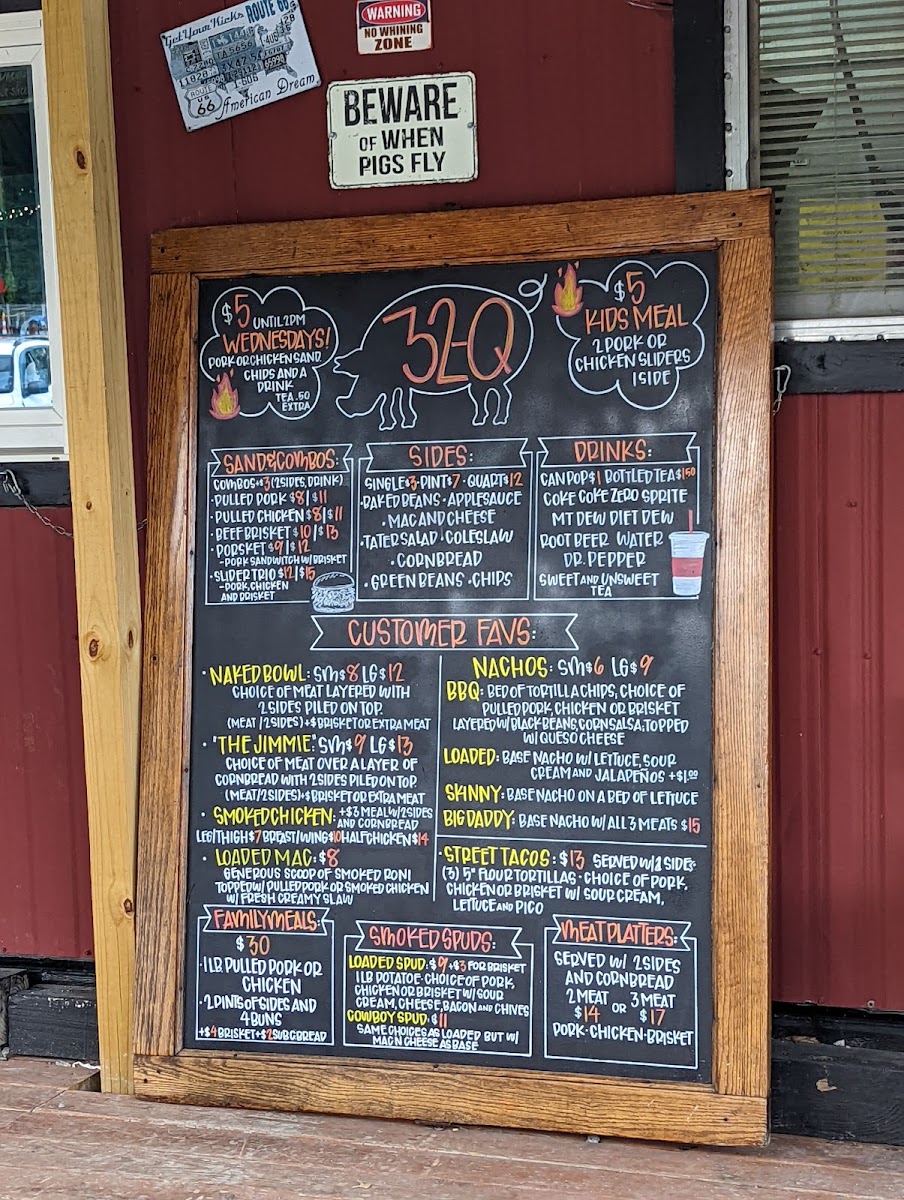 Get Your Kicks ROUTE 66
ROUTE
US
66
American Dream
WARNING
NO WHINING
ZONE
BEWARE
OF WHEN
PIGS FLY
$5 UNTIL 2PM
WEDNESDAYS!
PORK OR CHICKEN SAND
CHIPS AND A
DRINK
TEA .50
EXTRA
32-Q
$5
KIDS MEAL
2 PORK OR
CHICKEN SLIDERS
1 SIDE
SAND & COMBOS:
COMBOS +$3 (2 SIDES, DRINK)
· PULLED PORK $8/$11
· PULLED CHICKEN $8/$11
· BEEF BRISKET $10/$13
· PORSKET $9/$12
-PORK SANDWITCH W/ BRISKET
· SLIDER TRIO $12/$15
-PORK, CHICKEN
AND BRISKET
SIDES:
SINGLE $3 · PINT $7 · QUART $12
· BAKED BEANS · APPLESAUCE
· MAC AND CHEESE
· TATER SALAD · COLESLAW
· CORNBREAD
· GREEN BEANS · CHIPS
DRINKS:
CAN POP $1 BOTTLED TEA $1.50
COKE COKE ZERO SPRITE
MT DEW DIET DEW
ROOT BEER WATER
DR. PEPPER
SWEET AND UNSWEET
TEA
CUSTOMER FAVS:
· NAKED BOWL: SM $8 LG $12
CHOICE OF MEAT LAYERED WITH
2 SIDES PILED ON TOP.
(MEAT / 2 SIDES) +$ BRISKET OR EXTRA MEAT
· "THE JIMMIE:" SM $9 LG $13
CHOICE OF MEAT OVER A LAYER OF
CORNBREAD WITH 2 SIDES PILED ON TOP.
(MEAT/2 SIDES) +$ BRISKET OR EXTRA MEAT
· SMOKED CHICKEN: +$3 MEAL W/ 2 SIDES
AND CORNBREAD
LEG/THIGH $7 BREAST/WING $10 HALF CHICKEN $14
· LOADED MAC: $8
GENEROUS SCOOP OF SMOKED RONI
TOPPED W/ PULLED PORK OR SMOKED CHICKEN
W/ FRESH CREAMY SLAW
NACHOS: SM $6 LG $9
BBQ: BED OF TORTILLA CHIPS, CHOICE OF
PULLED PORK, CHICKEN OR BRISKET
LAYERED W/ BLACK BEANS, CORN SALSA, TOPPED
W/ QUESO CHEESE
LOADED: BASE NACHO W/ LETTUCE, SOUR
CREAM AND JALAPEÑOS +$1.00
SKINNY: BASE NACHO ON A BED OF LETTUCE
BIG DADDY: BASE NACHO W/ ALL 3 MEATS $15
· STREET TACOS: $13 SERVED W/ 2 SIDES
(3) 5" FLOUR TORTILLAS · CHOICE OF PORK,
CHICKEN OR BRISKET W/ SOUR CREAM,
LETTUCE AND PICO
FAMILY MEALS:
$30
· 1 LB. PULLED PORK OR
CHICKEN
· 2 PINTS OF SIDES AND
4 BUNS
+$4 BRISKET +$2 SUB C.BREAD
SMOKED SPUDS:
LOADED SPUD: $9 +$3 FOR BRISKET
1 LB POTATOE · CHOICE OF PORK
CHICKEN OR BRISKET W/ SOUR
CREAM, CHEESE, BACON AND CHIVES
COWBOY SPUD: $11
SAME CHOICES AS LOADED BUT W/
MAC N CHEESE AS BASE
MEAT PLATTERS:
SERVED W/ 2 SIDES
AND CORNBREAD
2 MEAT OR 3 MEAT
$14 $17
PORK · CHICKEN · BRISKET